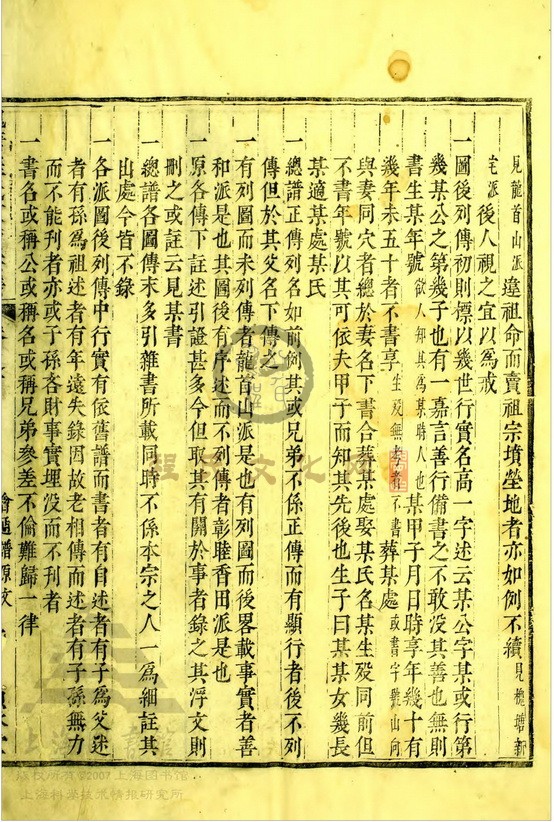 見龍首山派違祖命而賣祖宗墳塋地者亦如例不續見槐塘新
宅派後人視之宜以為戒
一圖後列傳初則標以幾世行實名高一字述云某公字某或行第
幾某公之第幾子也有一嘉言善行備書之不敢没其善也無則
書生某年號欲人知其為某時人也某甲子月日時享年幾十有
幾年未五十者不書享生殁無考者不書葬某處或書字號山向
與妻同穴者總於妻名下書合葬某處娶某氏名某生殁同前但
不書年號以其可依夫甲子而知其先後也生子曰某某女幾長
某適某處某氏
一總譜正傳列名如前例其或兄弟不係正傳而有顯行者後不列
傳但於其父名下傳之
一有列圖而未列傳者龍首山派是也有列圖而後畧載事實者善
和派是也其圖後有序述而不列傳者彰睦香田派是也
一原各傳下註述引證甚多今但取其有關於事者錄之其浮文則
刪之或註云見某書
一總譜各圖傳末多引雜書所載同時不係本宗之人一為細註其
出處今皆不錄
一各派圖後列傳中行實有依舊譜而書者有自述者有子為父述
者有孫為祖述者有年遠失錄因故老相傳而述者有子孫無力
而不能刊者亦或子孫吝財事實埋没而不刊者
一書名或稱公或稱名或稱兄弟參差不倫難歸一律
會通譜原文
版权所有©2007上海图书馆
上海科学技术情报研究所